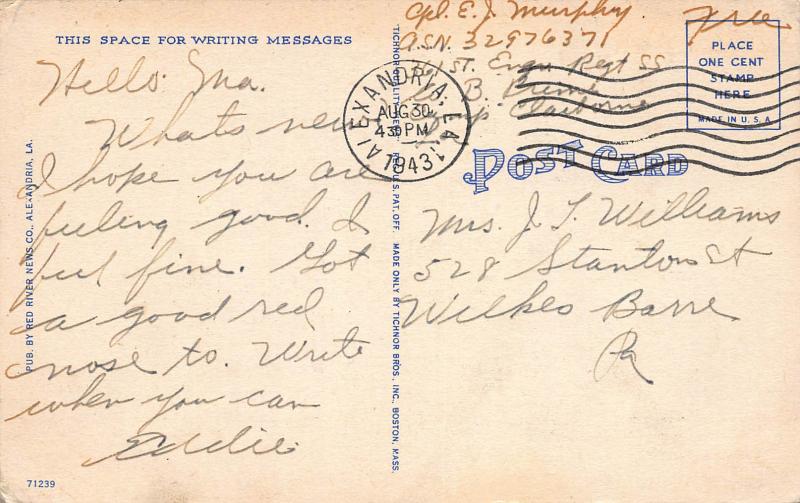 THIS SPACE FOR WRITING MESSAGES
Hello Ma.
Whats new
I hope you are
feeling good. I
feel fine. Got
a good red
nose to. Write
when you can
Eddie
71239
PUB. BY RED RIVER NEWS CO., ALEXANDRIA, LA.
TICHNOR QUALITY REG. U.S. PAT. OFF. MADE ONLY BY TICHNOR BROS., INC., BOSTON, MASS.
Cpl. E. J. Murphy
A.S.N. 32976371
1ST. Engr Regt SS
B. Prime
Camp Claiborne
Free
ALEXANDRIA, LA.
AUG 30
430 PM
1943
PLACE
ONE CENT
STAMP
HERE
MADE IN U.S.A
POST CARD
Mrs. J. T. Williams
528 Stanton St
Wilkes Barre
Pa